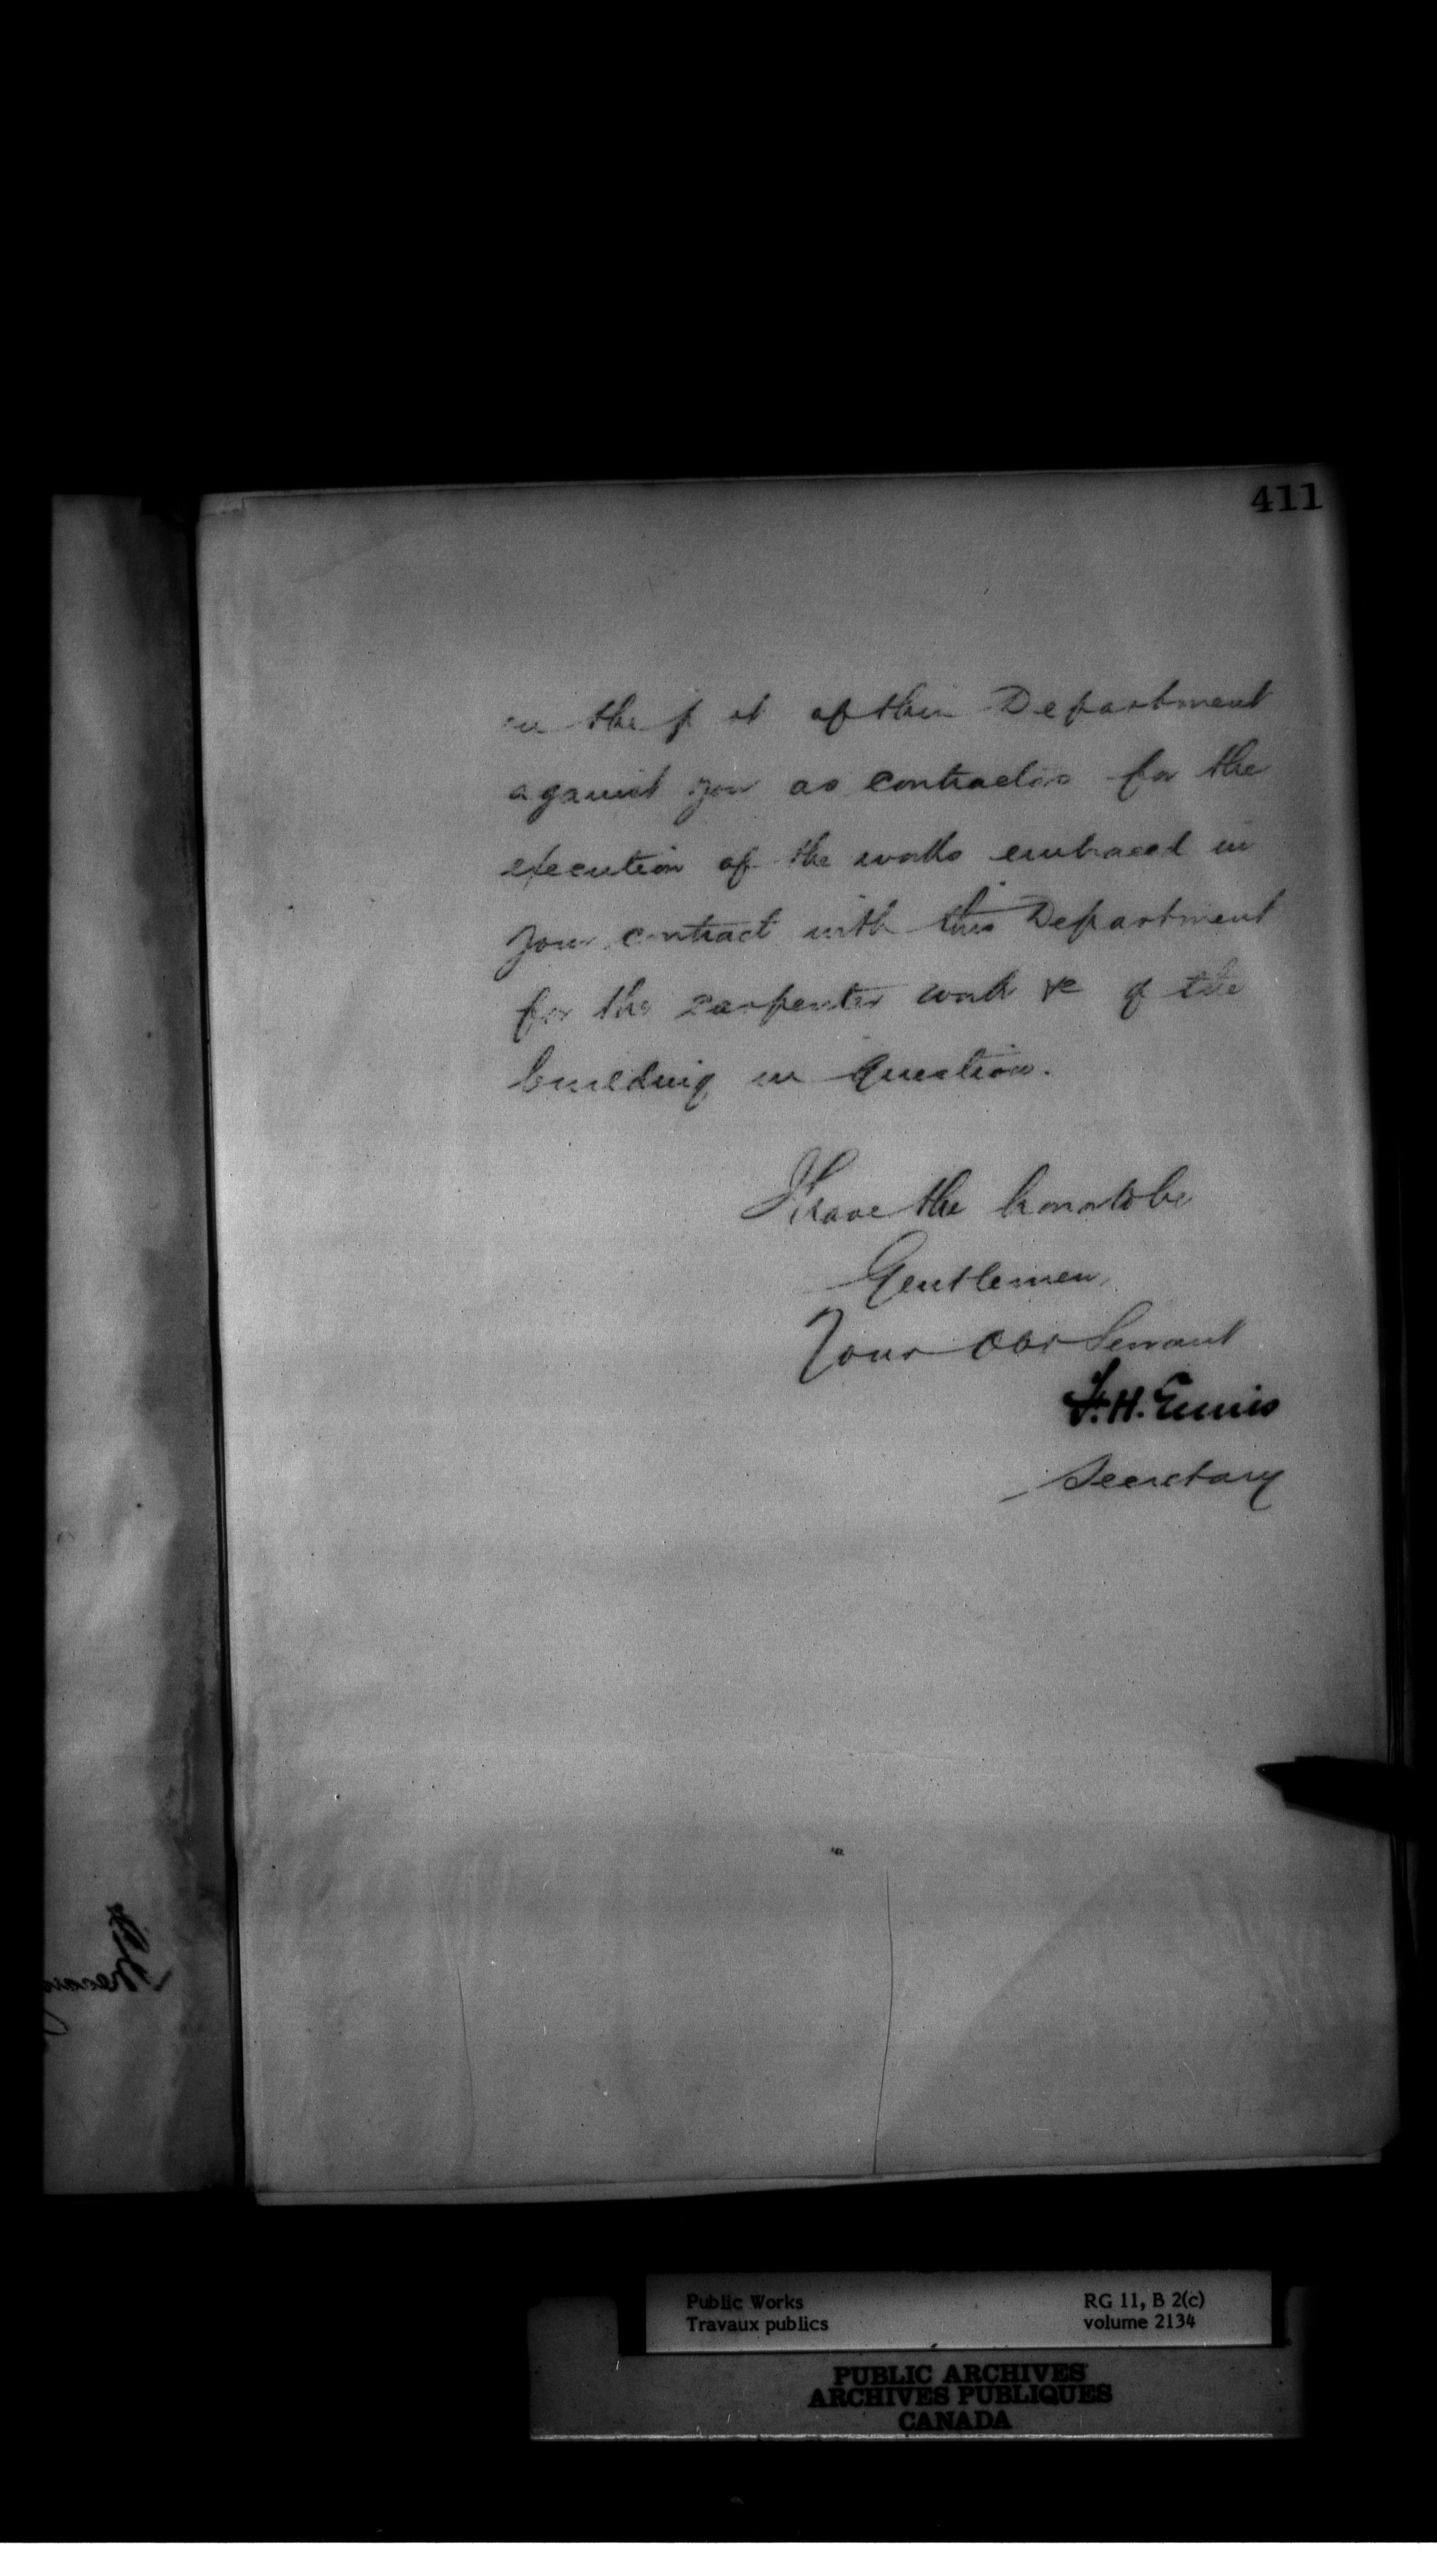 411
on the p rt of this Department
against you as contractors for the
execution of the works embraced in
your contract with this Department
for the carpenter work &c of the
building in question.
I have the honor to be
Gentlemen,
Your Obt Servant
F. H. Ennis
Secretary
Public Works
Travaux publics
RG 11, B 2(c)
volume 2134
PUBLIC ARCHIVES
ARCHIVES PUBLIQUES
CANADA